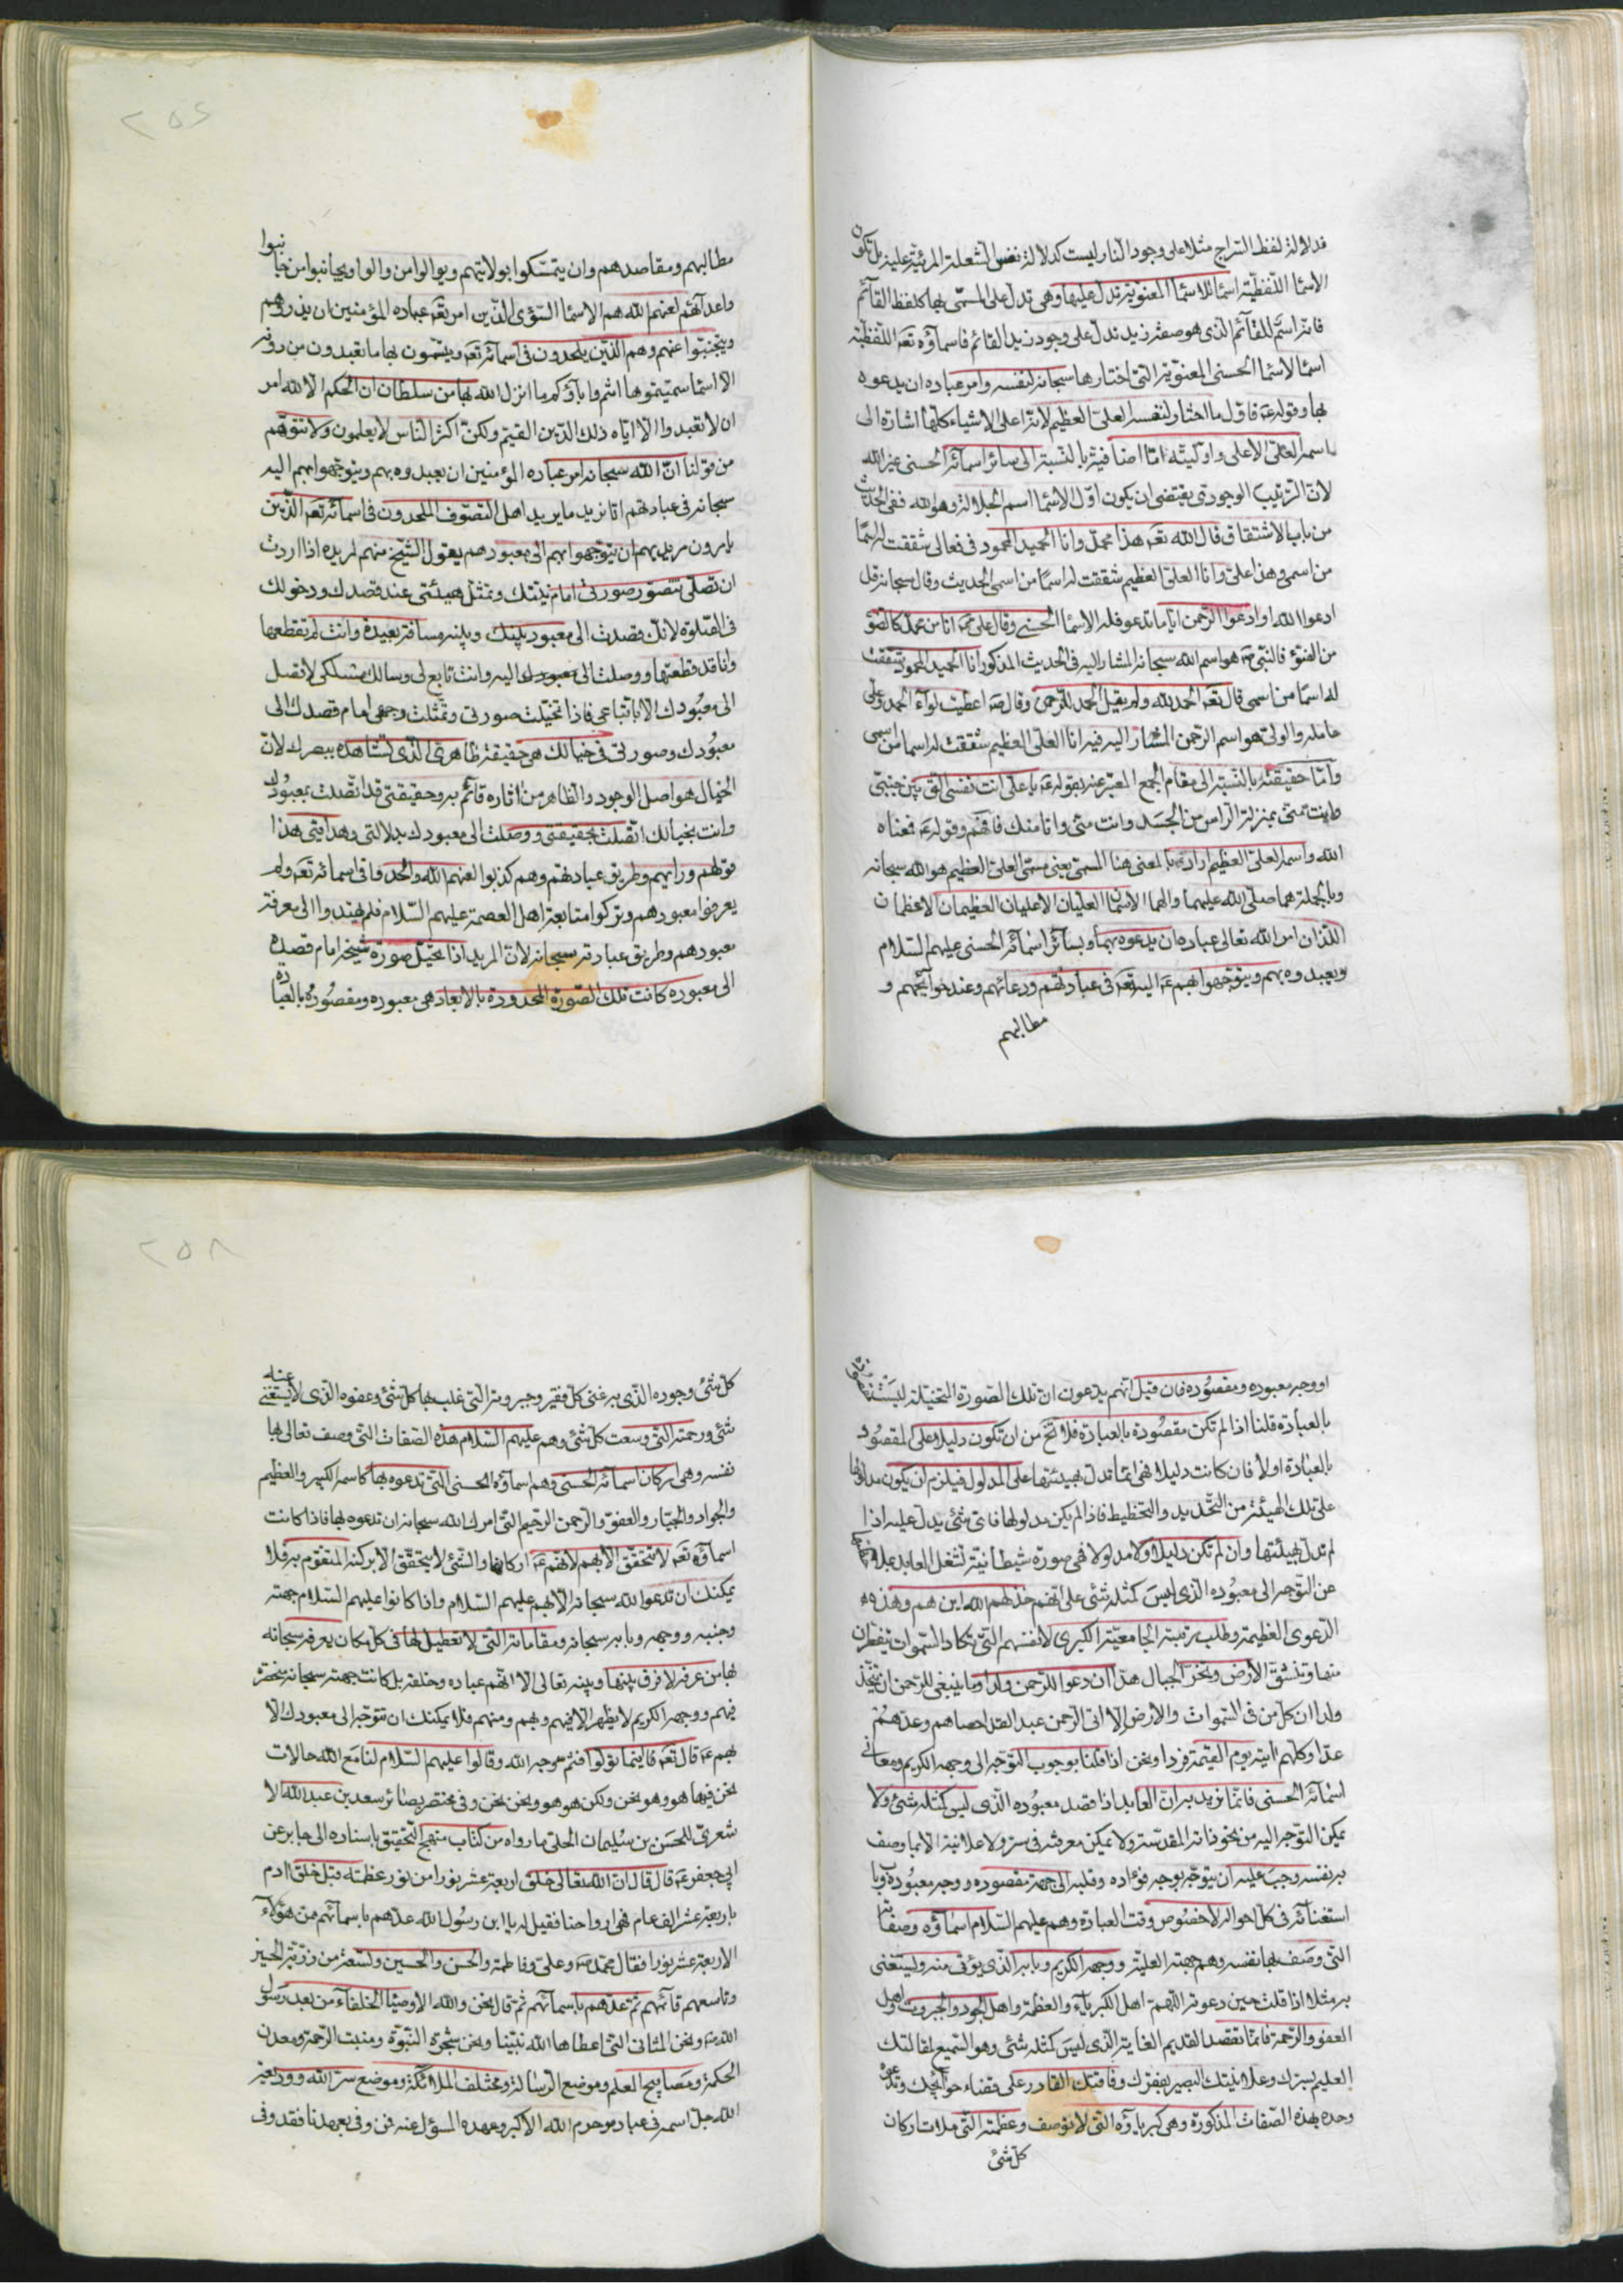 فدلالة لفظ السراج مثلا على وجود النار ليست كدلالة نفس الشعلة المرئية عليه بل تكون
الاسماء اللفظية اسماء للاسماء المعنوية تدل عليها وهى تدل على المسمى بها كلفظ القائم
فانه اسم للقائم الذى هو صفة زيد تدل على وجود زيد القائم فاسماؤه تعه اللفظية
اسماء الاسماء الحسنى المعنوية التى اختارها سبحانه لنفسه وامر عباده ان يدعوه
بها وقوله عه فاول ما اختار لنفسه العلى العظيم لانه اعلى الاشياء كلها اشارة الى
اسمه العلى الأعلى واوليته امّا اضافية بالنسبة الى سائر اسمائه الحسنى غير الله
لان الترتيب الوجودى يقتضى ان يكون اول الاسماء اسم الجلالة وهو الله ففى الحديث
من باب الاشتقاق قال الله تعه هذا محمد وانا الحميد المحمود فى فعالى شققت له اسما
من اسمى وهذا على وانا العلى العظيم شققت له اسما من اسمى الحديث وقال سبحانه قل
ادعوا الله او ادعوا الرحمن ايّا ما تدعو فله الاسماء الحسنى وقال على عه انا من محمد كالضوء
من الضوء فالنبى صه هو اسم الله سبحانه المشار اليه فى الحديث المذكور انا الحميد المحمود شققت
له اسما من اسمى قال تعه الحمد لله ولم يقل الحمد للرحمن وقال صه اعطيت لوآء الحمد وعلى
حامله والولى هو اسم الرحمن المشار اليه فيه انا العلى العظيم شققت له اسما من اسمى
وامّا حقيقته بالنسبة الى مقام الجمع المعبر عنه بقوله عه يا على انت نفسى التى بين جنبى
وانت منى بمنزلة الراس من الجسد وانت منى وانا منك فافهم وقوله عه فمعناه
الله واسمه العلى العظيم اراد بالمعنى هنا المسمى يعنى مسمى العلى العظيم هو الله سبحانه
وبالجملة هما صلى الله عليهما والهما الاسمان العليان الاعليان العظيمان الاعظمان
اللذان امر الله تعالى عباده ان يدعوه بهما وبسائر اسمائه الحسنى عليهم السلام
ويعبدوه بهم ويتوجهوا بهم عه اليه تعه فى عباداتهم ودعائهم وعند حوائجهم و
مطالبهم
٢٥٤
مطالبهم ومقاصدهم وان يتمسكوا بولايتهم ويوالوا من والوا ويجانبوا من جانبوا
واعدآئهم لعنهم الله هم الاسماء السؤى الذين امر تعه عباده المؤمنين ان يذروهم
ويجتنبوا عنهم وهم الذين يلحدون فى اسمائه تعه ويسمون بها ما تعبدون من دونه
الا اسماء سميتموها انتم واباؤكم ما انزل الله بها من سلطان ان الحكم الا لله امر
ان لا تعبدوا الا اياه ذلك الدين القيم ولكن اكثر الناس لا يعلمون ولا تتوهم
من قولنا ان الله سبحانه امر عباده المؤمنين ان يعبدوه بهم ويتوجهوا بهم اليه
سبحانه فى عبادتهم انا نريد ما يريد اهل التصوف الملحدون فى اسمائه تعه الذين
يامرون مريديهم ان يتوجهوا بهم الى معبودهم يقول الشيخ منهم لمريده اذا اردت
ان تصلى تتصور صورتى امام نيتك وتمثل هيئتى عند قصدك ودخولك
فى الصلوة لانك قصدت الى معبود بينك وبينه مسافة بعيدة وانت لم تقطعها
وانا قد قطعتها ووصلت الى معبودك اليه وانت تابع لى وسالك مسلكى لا تصل
الى معبودك الا باتباعى فاذا تخيلت صورتى وتمثلت وجهى امام قصدك الى
معبودك وصورتى فى خيالك هى حقيقة ظاهرى الذى تشاهده ببصرك لان
الخيال هو اصل الوجود والظاهر من اثاره قائم به وحقيقتى قد اتصلت بمعبودك
وانت بخيالك اتصلت بحقيقتى ووصلت الى معبودك بدلالتى وهدايتى هذا
قولهم ورايهم وطريق عبادتهم وهم كذبوا لعنهم الله والحدوا فى اسمائه تعه ولم
يعرفوا معبودهم وتركوا متابعة اهل العصمة عليهم السلام فلم يهتدوا الى معرفة
معبودهم وطريق عبادته سبحانه لان المريد اذا تخيل صورة شيخه امام قصده
الى معبوده كانت تلك الصورة المحدودة بالابعاد هى معبوده ومقصوده بالعبادة
او وجه معبوده ومقصوده فان قيل انهم يدعون ان تلك الصورة المتخيلة ليست
بالعبادة قلنا اذا لم تكن مقصودة بالعبادة فلا تخ من ان تكون دليلا على المقصود
بالعبادة اولا فان كانت دليلا فهى انما تدل بهيئتها على المدلول فيلزم ان يكون مدلولها
على تلك الهيئة من التحديد والتخطيط فاذا لم يكن مدلولها فاى شئ يدل عليه اذا
لم تدل بهيئتها وان لم تكن دليلا ولا مدلولا فهى صورة شيطانية تشغل العابد
عن التوجه الى معبوده الذى ليس كمثله شئ على انهم خذلهم الله اين هم وهذه
الدعوى العظيمة وطلب رتبة الجامعية الكبرى لانفسهم التى تكاد السموات يتفطرن
منها وتنشق الأرض وتخر الجبال هدّا ان دعوا للرحمن ولدا وما ينبغى للرحمن ان يتخذ
ولدا ان كل من فى السموات والأرض الا اتى الرحمن عبدا لقد احصاهم وعدهم
عدّا وكلهم اتيه يوم القيمة فردا ونحن اذا قلنا بوجوب التوجه الى وجهه الكريم ومعانى
اسمائه الحسنى فانما نريد به ان العابد اذا قصد معبوده الذى ليس كمثله شئ ولا
يمكن التوجه اليه من نحو ذاته المقدسة ولا يمكن معرفته فى سر ولا علانية الا بما وصف
به نفسه وجب عليه ان يتوجه بوجه فؤاده وقلبه الى جهة مقصوده ووجه معبوده وباب
استغنائه فى كل احواله لا خصوص وقت العبادة وهم عليهم السلام اسماؤه وصفاته
التى وصف بها نفسه وهم جهته العلية ووجهه الكريم وبابه الذى يؤتى منه وليستغنى
به مثلا اذا قلت حين دعوته اللهم اهل الكبرياء والعظمة واهل الجود والجبروت واهل
العفو والرحمة فانما تقصد القديم الغاية الذى ليس كمثله شئ وهو السميع لمقالتك
العليم بسرك وعلانيتك البصير بفقرك وفاقتك القادر على قضاء حوائجك وتدعوه
وحده بهذه الصفات المذكورة وهى كبرياؤه التى لا توصف وعظمته التى ملات اركان
كل شئ
٢٥٨
كل شئ وجوده الذى به غنى كل فقير وجبروته التى غلب بها كل شئ وعفوه الذى لا يستغنى عنه
شئ ورحمته التى وسعت كل شئ وهم عليهم السلام هذه الصفات التى وصف تعالى بها
نفسه وهى اركان اسمائه الحسنى وهم اسماؤه الحسنى التى تدعوه بها كاسمه الكبير والعظيم
والجواد والجبار والعفو والرحمن الرحيم التى امرك الله سبحانه ان تدعوه بها فاذا كانت
اسماؤه تعه لا تتحقق الا بهم لانهم عه اركانها والشئ لا يتحقق الا بركنه المتقوم به فلا
يمكنك ان تدعوا الله سبحانه الا بهم عليهم السلام واذا كانوا عليهم السلام جهته
وجنبه ووجهه وبابه سبحانه ومقاماته التى لا تعطيل لها فى كل مكان يعرفه سبحانه
بها من عرفه لا فرق بينها وبينه تعالى الا انهم عباده وخلقه بل كانت جهته سبحانه منحصرة
فيهم ووجهه الكريم لا يظهر الا فيهم وبهم ومنهم فلا يمكنك ان تتوجه الى معبودك الا
بهم عه قال تعه فاينما تولوا فثم وجه الله وقالوا عليهم السلام لنا مع الله حالات
نحن فيها هو وهو نحن ولكن هو هو ونحن نحن وفى مختصر بصائر سعد بن عبدالله الا
شعرى للحسن بن سليمان الحلى ما رواه من كتاب منهج التحقيق باسناده الى جابر عن
ابى جعفر عه قال قال ان الله تعالى خلق اربعة عشر نورا من نور عظمته قبل خلق ادم
باربعة عشر الف عام فهى ارواحنا فقيل له يا ابن رسول الله عدهم باسمائهم من هؤلآء
الاربعة عشر نورا فقال محمد صه وعلى وفاطمة والحسن والحسين وتسعة من ذرية الحسين
وتاسعهم قائمهم ثم عدهم باسمائهم ثم قال نحن والله الاوصياء الخلفاء من بعد رسول
الله صه ونحن المثانى التى اعطاها الله نبينا ونحن شجرة النبوة ومنبت الرحمة ومعدن
الحكمة ومصابيح العلم وموضع الرسالة ومختلف الملائكة وموضع سر الله ووديعة
الله جل اسمه فى عباده وحرم الله الاكبر وعهده المسؤل عنه فمن وفى بعهدنا فقد وفى